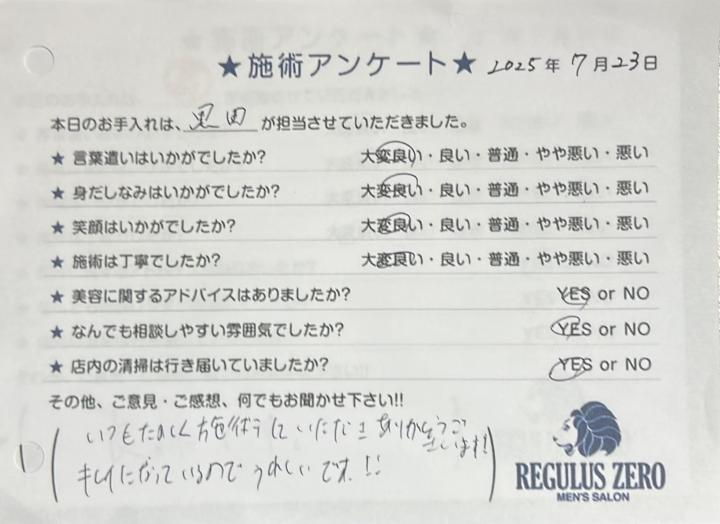 ★施術アンケート★ 2025年 7月23日
本日のお手入れは、黒田 が担当させていただきました。
★ 言葉遣いはいかがでしたか? 大変良い・良い・普通・やや悪い・悪い
★ 身だしなみはいかがでしたか? 大変良い・良い・普通・やや悪い・悪い
★ 笑顔はいかがでしたか? 大変良い・良い・普通・やや悪い・悪い
★ 施術は丁寧でしたか? 大変良い・良い・普通・やや悪い・悪い
★ 美容に関するアドバイスはありましたか? YES or NO
★ なんでも相談しやすい雰囲気でしたか? YES or NO
★ 店内の清掃は行き届いていましたか? YES or NO
その他、ご意見・ご感想、何でもお聞かせ下さい!!
いつもたのしく施術していただきありがとうございます!
キレイになっているのでうれしいです!!
REGULUS ZERO
MEN'S SALON